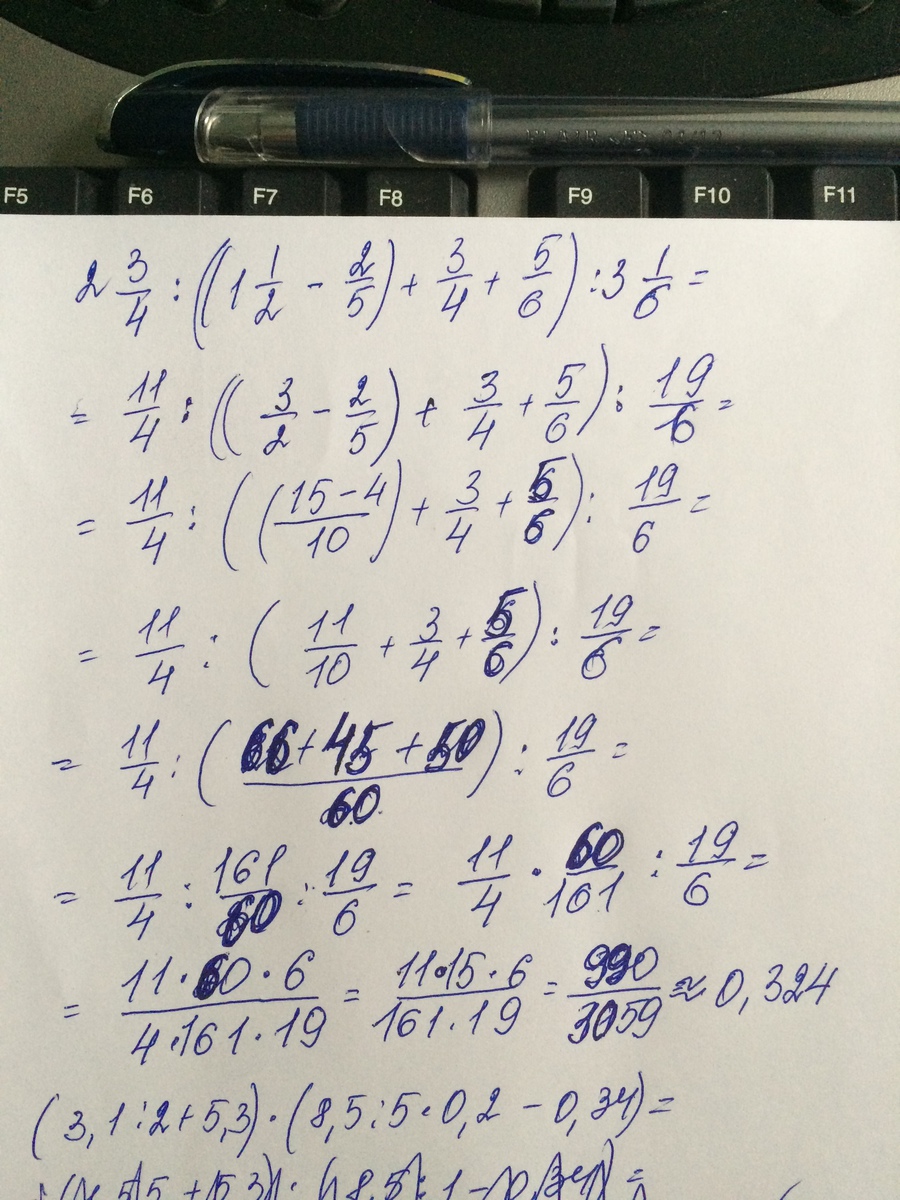 F5 F6 F7 F8 F9 F10 F11
2 3/4 : ((1 1/2 - 2/5) + 3/4 + 5/6) : 3 1/6 =
= 11/4 : ((3/2 - 2/5) + 3/4 + 5/6) : 19/6 =
= 11/4 : ((15-4)/10) + 3/4 + 5/6) : 19/6 =
= 11/4 : (11/10 + 3/4 + 5/6) : 19/6 =
= 11/4 : ((66+45+50)/60) : 19/6 =
= 11/4 : 161/60 : 19/6 = 11/4 · 60/161 : 19/6 =
= (11·60·6)/(4·161·19) = (11·15·6)/(161·19) = 990/3059 ≈ 0,324
(3,1:2+5,3)·(8,5:5·0,2-0,34)=